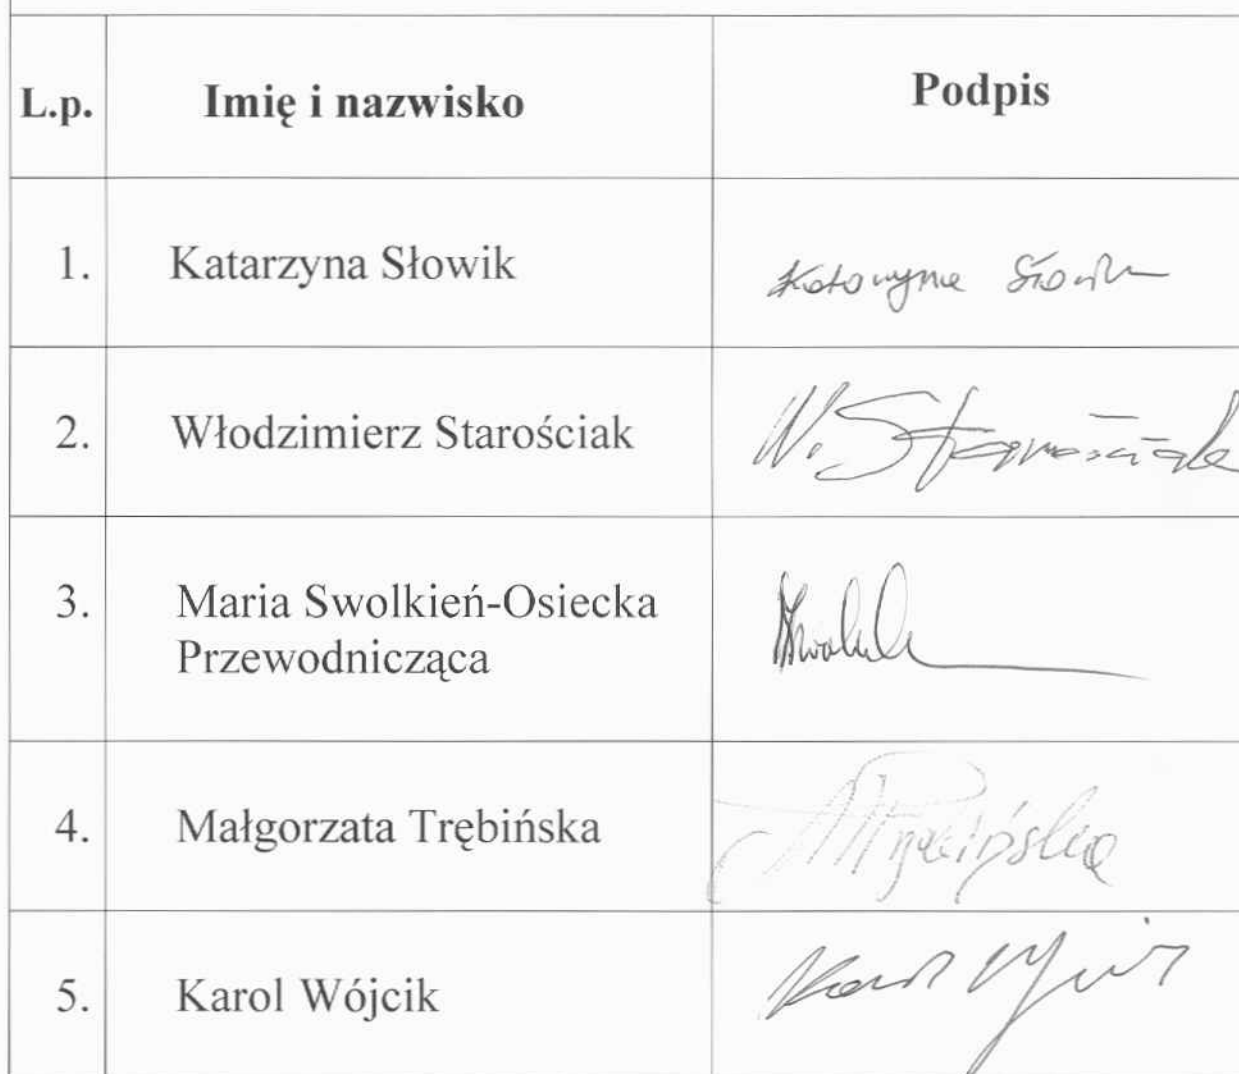 L.p. Imię i nazwisko Podpis
1. Katarzyna Słowik Katarzyna Słowik
2. Włodzimierz Starościak W. Starościak
3. Maria Swolkień-Osiecka
Przewodnicząca
4. Małgorzata Trębińska
5. Karol Wójcik Karol Wójcik